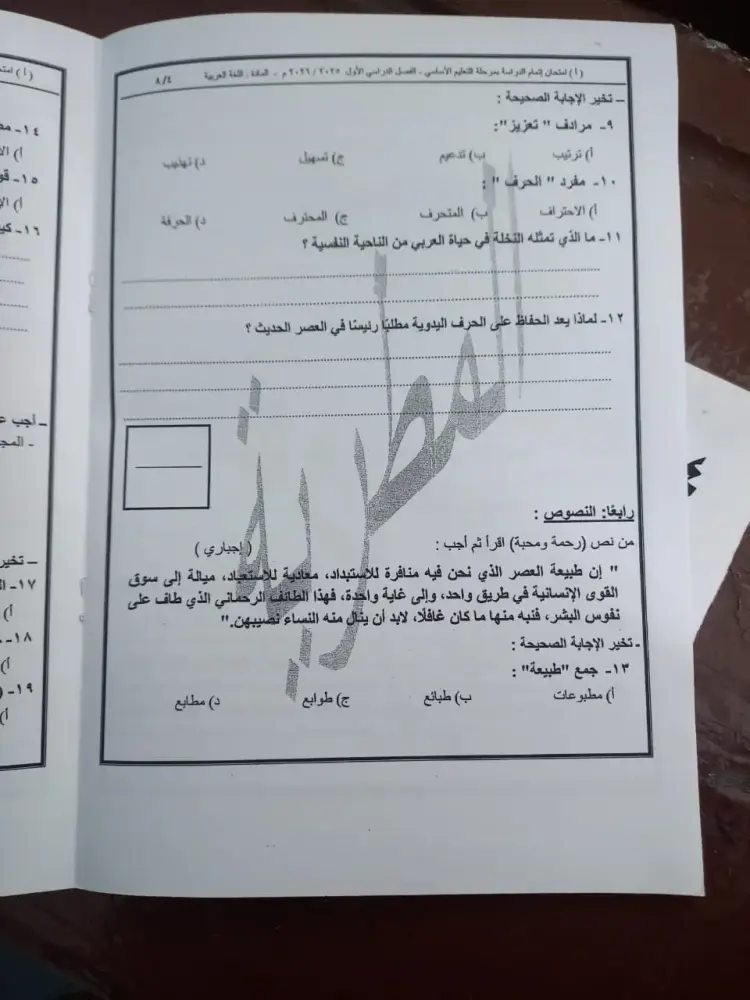 (أ) امتحان إتمام الدراسة بمرحلة التعليم الأساسي - الفصل الدراسي الأول ٢٠٢٥ / ٢٠٢٦ م - المادة : اللغة العربية ٨/٤
– تخير الإجابة الصحيحة :
٩- مرادف " تعزيز":
أ) ترتيب ب) تدعيم ج) تسهيل د) تهذيب
١٠- مفرد " الحرف " :
أ) الاحتراف ب) المتحرف ج) المحترف د) الحرفة
١١- ما الذي تمثله النخلة في حياة العربي من الناحية النفسية ؟
١٢- لماذا يعد الحفاظ على الحرف اليدوية مطلبًا رئيسًا في العصر الحديث ؟
رابعًا: النصوص :
من نص (رحمة ومحبة) اقرأ ثم أجب : ( إجباري )
" إن طبيعة العصر الذي نحن فيه منافرة للاستبداد، معادية للاستعباد، ميالة إلى سوق
القوى الإنسانية في طريق واحد، وإلى غاية واحدة، فهذا الطائف الرحماني الذي طاف على
نفوس البشر، فنبه منها ما كان غافلًا، لابد أن ينال منه النساء نصيبهن."
- تخير الإجابة الصحيحة :
١٣- جمع "طبيعة" :
أ) مطبوعات ب) طبائع ج) طوابع د) مطابع
المطرية
(أ) امتح
١٤-
أ)
١٥-
أ)
١٦-
– أجب
– تخير
١٧-
أ)
١٨-
أ)
١٩-
أ)